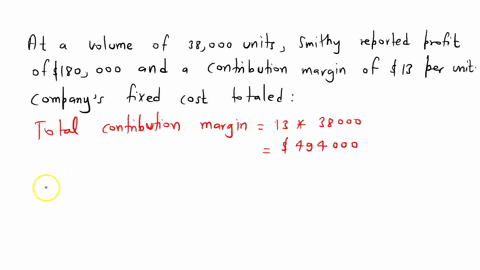 At a volume of 38,000 units, Smithy reported profit
of $180,000 and a contribution margin of $13 per unit.
Company's fixed cost totaled:
Total contribution margin = 13 * 38000
= $494000